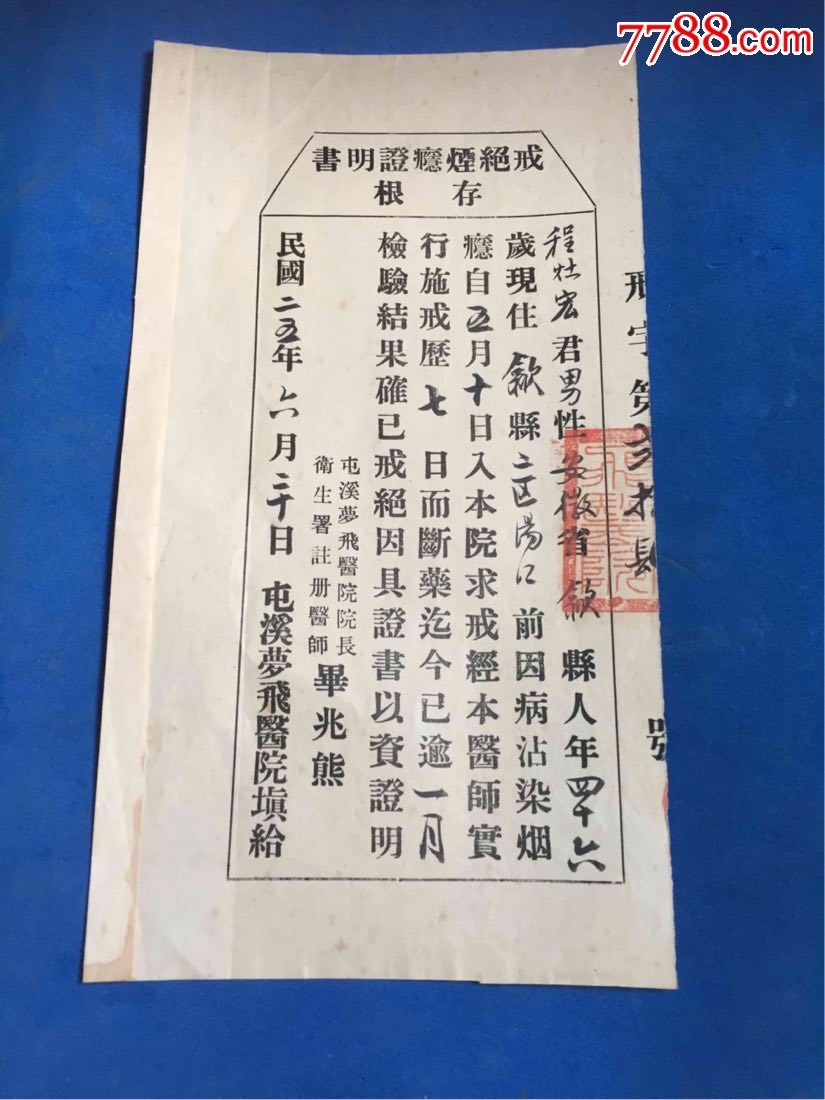 7788.com
戒絕煙癮證明書
存根
程壯宏君男性安徽省歙縣人年四十六
歲現住歙縣二区湯口前因病沾染烟
癮自五月十日入本院求戒經本醫師實
行施戒歷七日而斷藥迄今已逾一月
檢驗結果確已戒絕因具證書以資證明
屯溪夢飛醫院院長
衛生署註册醫師
畢兆熊
民國二五年六月二十日屯溪夢飛醫院塡給
字第貳拾
號